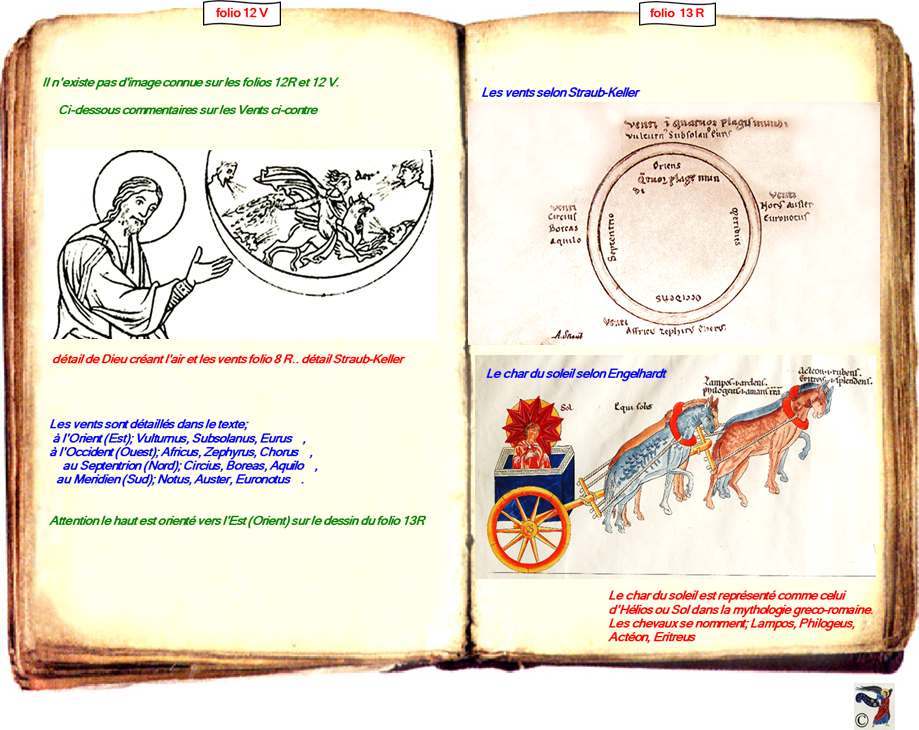 folio 12 V
Il n'existe pas d'image connue sur les folios 12R et 12 V.
Ci-dessous commentaires sur les Vents ci-contre
aer
détail de Dieu créant l'air et les vents folio 8 R.. détail Straub-Keller
Les vents sont détaillés dans le texte;
à l'Orient (Est); Vulturnus, Subsolanus, Eurus ,
à l'Occident (Ouest); Africus, Zephyrus, Chorus ,
au Septentrion (Nord); Circius, Boreas, Aquilo ,
au Meridien (Sud); Notus, Auster, Euronotus .
Attention le haut est orienté vers l'Est (Orient) sur le dessin du folio 13R
folio 13 R
Les vents selon Straub-Keller
Oriens
Venti
Circius
Boreas
Aquilo
Septentrio
Meridies
Venti
Auster
Euronotus
Occidens
Venti
Le char du soleil selon Engelhardt
Sol.
Equi solis
Lampos.i.ardens.
Acteon.i.rubens.
Le char du soleil est représenté comme celui
d'Hélios ou Sol dans la mythologie greco-romaine.
Les chevaux se nomment; Lampos, Philogeus,
Actéon, Eritreus
©